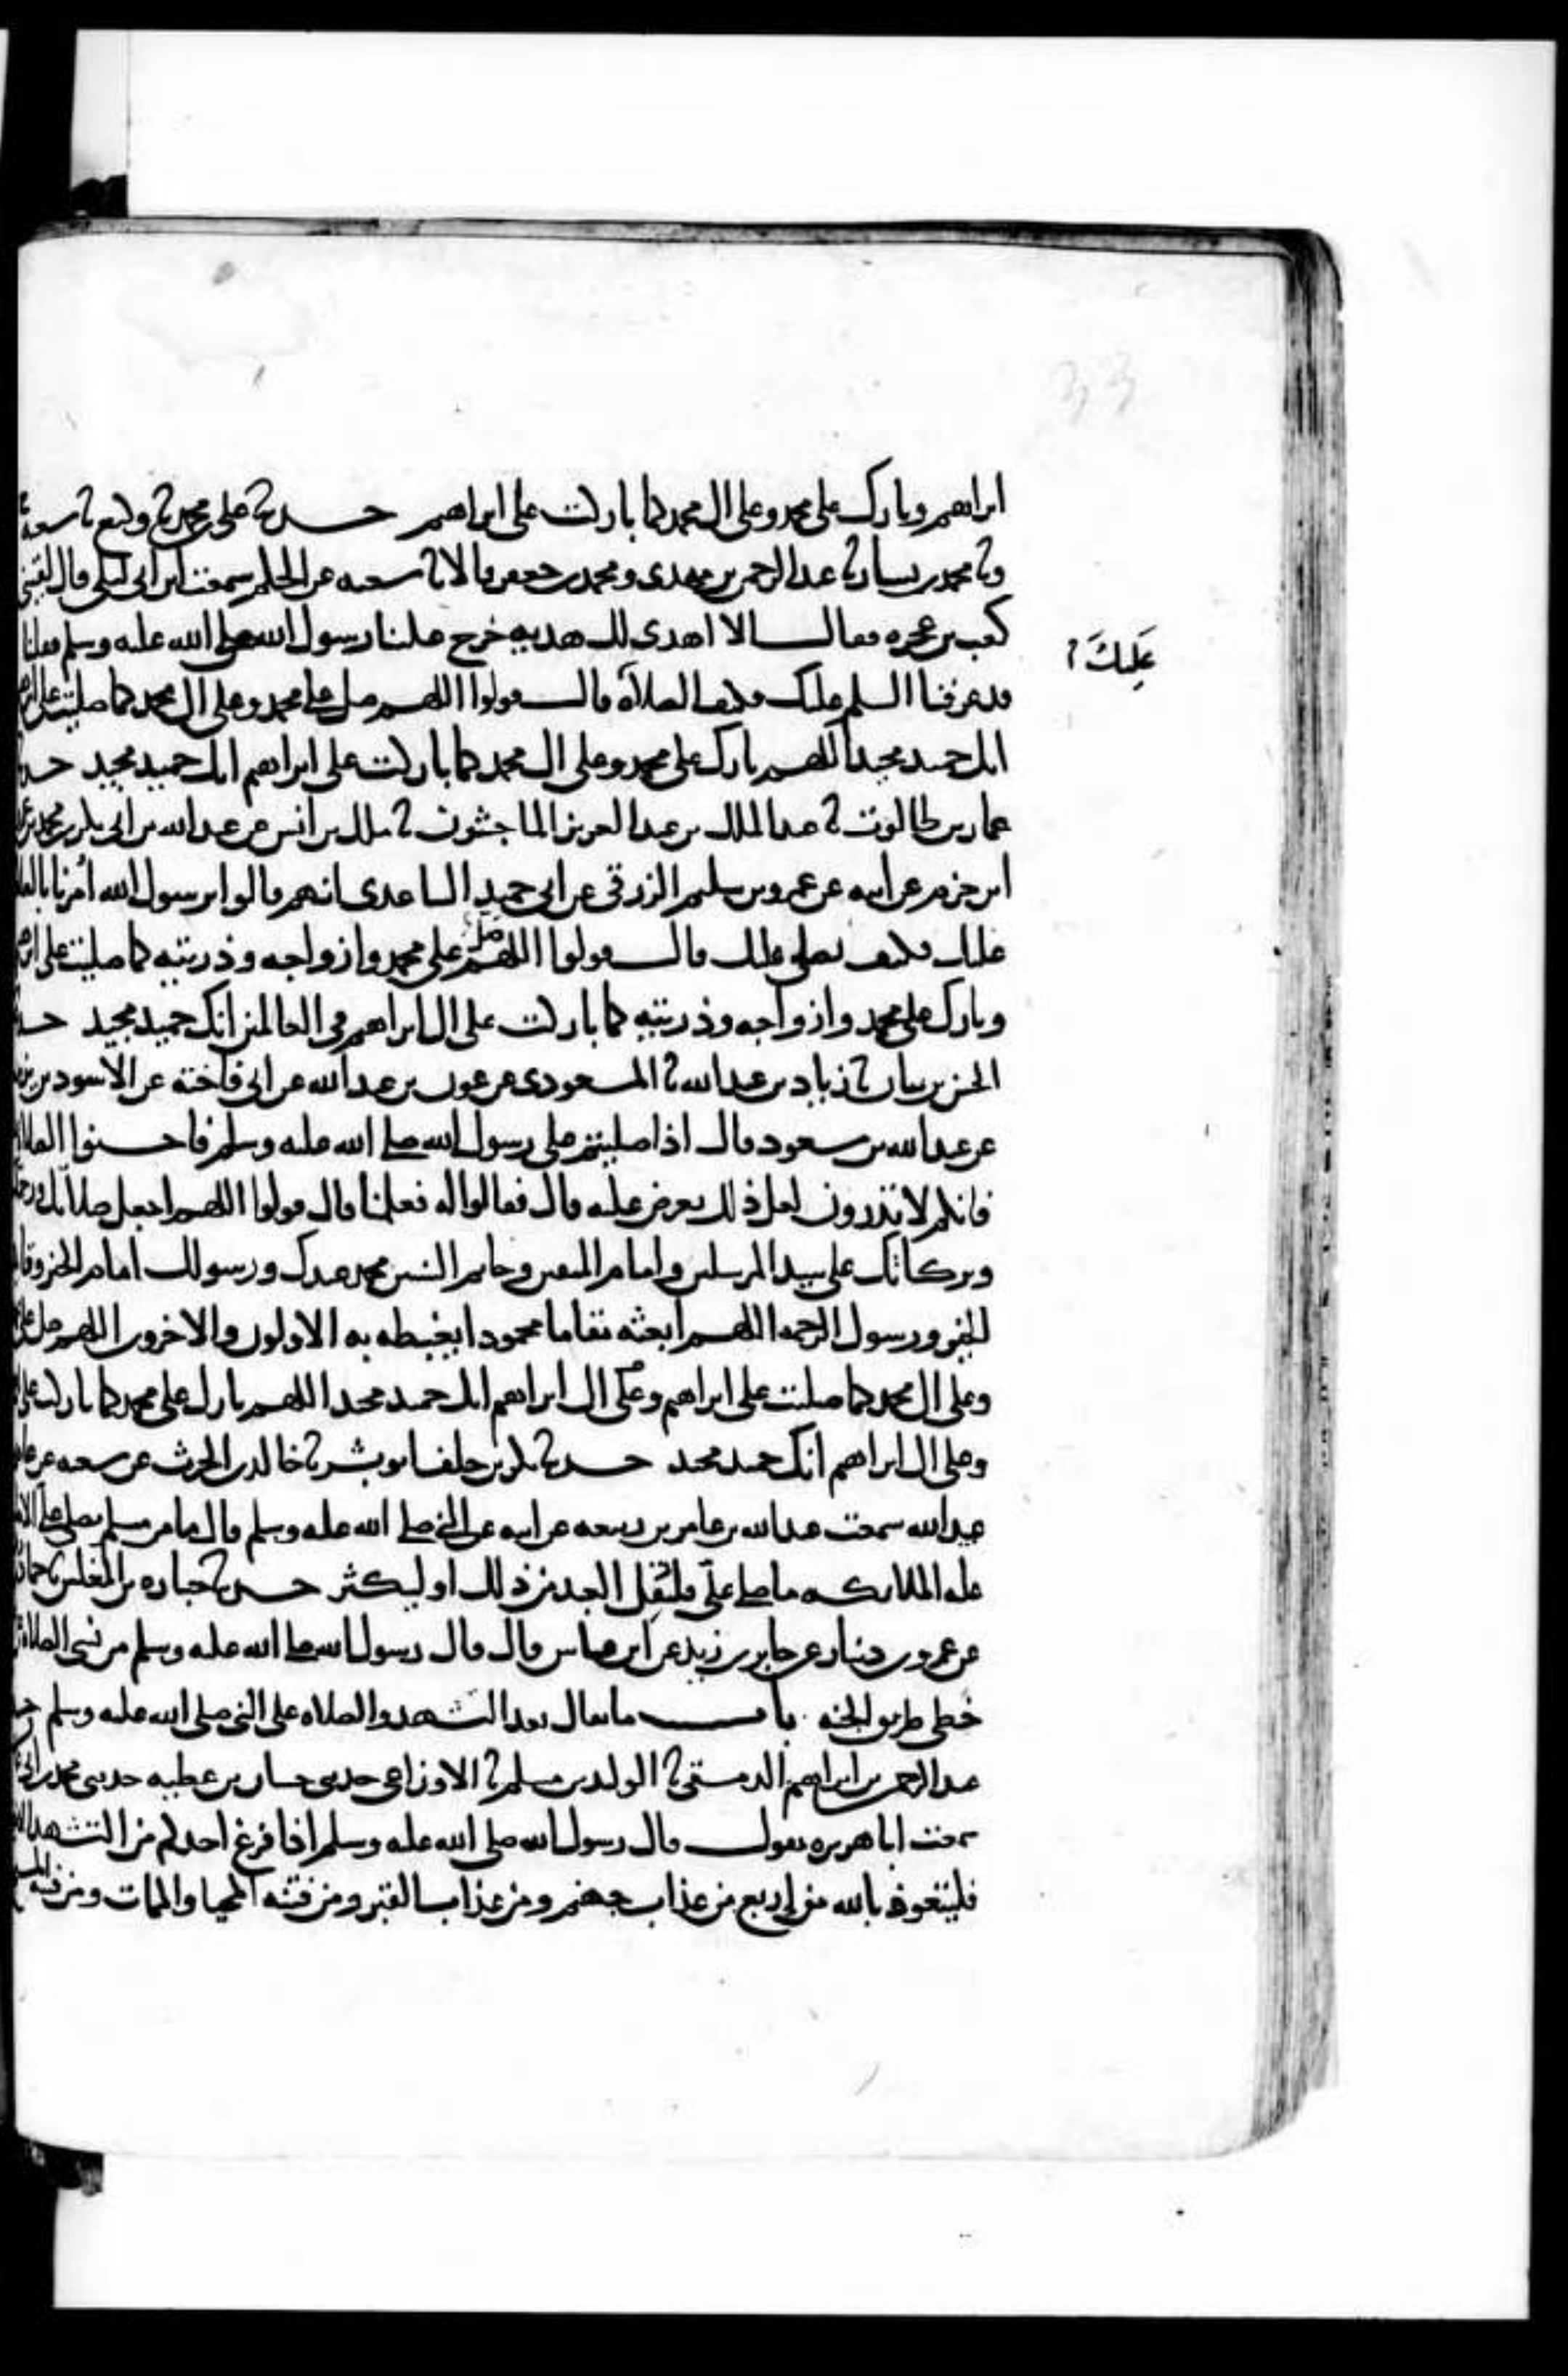 33
ابراهيم وبارك على محمد وعلى ال محمد كما باركت على ابراهيم حدثنا على بن محمد ثنا وكيع ثنا شعبة
وثنا محمد بن بشار ثنا عبد الرحمن بن مهدى ومحمد بن جعفر قالا ثنا شعبه عن الحكم سمعت ابن ابى ليلى قال لقينى
كعب بن عجره فقال الا اهدى لك هديه خرج علينا رسول الله صلى الله عليه وسلم فقلنا
عَلَيكَ
قد عرفنا السلم عليك فكيف الصلاة قال قولوا اللهم صل على محمد وعلى ال محمد كما صليت على
انك حميد مجيد اللهم بارك على محمد وعلى ال محمد كما باركت على ابراهيم انك حميد مجيد
عمار بن طالوت ثنا عبد الملك بن عبد العزيز الماجشون ثنا ملك بن انس عن عبد الله بن ابى بكر بن محمد بن
ابن حزم عن ابيه عن عمرو بن سليم الزرقى عن ابى حميد الساعدى انهم قالوا يرسول الله امرنا
عليك فكيف نصلى عليك قال قولوا اللهم صل على محمد وازواجه وذريته كما صليت على
وبارك على محمد وازواجه وذريته كما باركت على ال ابراهيم فى العالمين انك حميد مجيد
الحسن بن بيان ثنا زياد بن عبد الله ثنا المسعودى عن عون بن عبد الله عن ابى فاخته عن الاسود بن
عن عبد الله بن مسعود قال اذا صليتم على رسول الله صلى الله عليه وسلم فاحسنوا
فانكم لا تدرون لعل ذلك يعرض عليه قال فقالوا له فعلمنا قال قولوا اللهم اجعل صلاتك
وبركاتك على سيد المرسلين وامام المتقين وخاتم النبيين محمد عبدك ورسولك امام الخير
الخير ورسول الرحمه اللهم ابعثه مقاما محمودا يغبطه به الاولون والاخرون اللهم صل على
وعلى ال محمد كما صليت على ابراهيم وعلى ال ابراهيم انك حميد مجيد اللهم بارك على محمد كما باركت على
وعلى ال ابراهيم انك حميد مجيد حدثنا بكر بن خلف ابو بشر ثنا خالد بن الحرث عن شعبه عن
عبيد الله سمعت عبد الله بن عامر بن ربيعه عن ابيه عن النبى صلى الله عليه وسلم قال ما من مسلم يصلى على الا
عليه الملائكه ما صلى علىّ فليُقِل العبد من ذلك او ليكثر حدثنا جباره بن المغلس ثنا
عن عمرو بن دينار عن جابر بن زيد عن ابن عباس قال قال رسول الله صلى الله عليه وسلم من نسى الصلاة
خطى طريق الجنه باب ما يقال بعد التشهد والصلاه على النبى صلى الله عليه وسلم
عبد الرحمن بن ابراهيم الدمشقى ثنا الوليد بن مسلم ثنا الاوزاعى حدثنى حسان بن عطيه حدثنى محمد بن
سمعت ابا هريره يقول قال رسول الله صلى الله عليه وسلم اذا فرغ احدكم من التشهد
فليتعوذ بالله من اربع من عذاب جهنم ومن عذاب القبر ومن فتنه المحيا والممات ومن فتنه